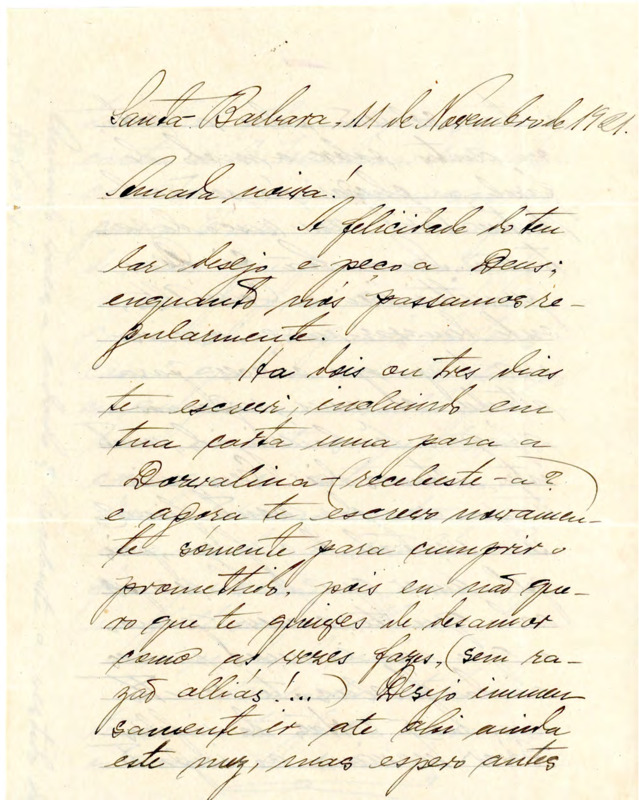 Santa Barbara, 11 de Novembro de 1921.
Amada noiva!
A felicidade do teu
lar desejo e peço a Deus;
enquanto nós passamos re-
gularmente.
Ha dois ou tres dias
te escrevi, incluindo em
tua carta uma para a
Dorvalina - (recebeste-a?)
e agora te escrevo novamen-
te sómente para cumprir o
promettido, pois eu não que-
ro que te queixes de desamor
como as vezes fazes, (sem ra-
zão alliás!...) Desejo immen
samente ir ate ahi ainda
este mez, mas espero antes